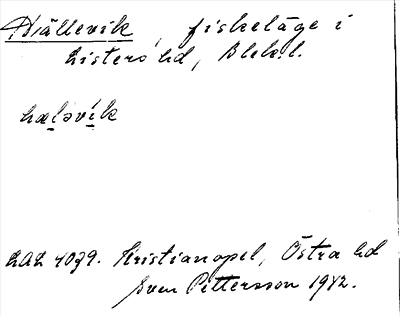 Hällevik, fiskeläge i
Listers hd, Blek. l.
hæləvik
LAL 4039. Kristianopel, Östra hd
Sven Pettersson 1942.